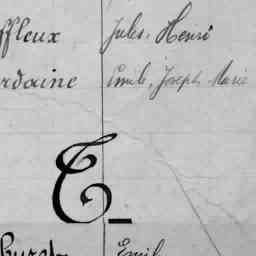 ffleux Jules, Henri
rdaine Emile, Joseph Marie
T_
Emil